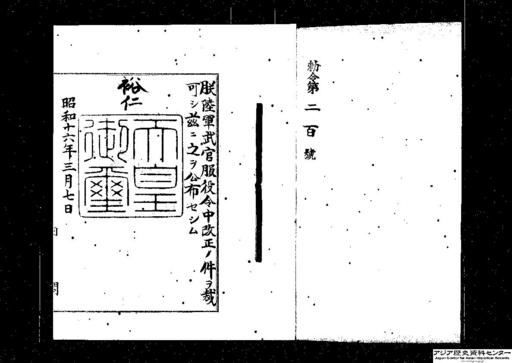 勅令第二百號
朕陸軍武官服役令中改正ノ件ヲ裁
可シ茲ニ之ヲ公布セシム
裕仁
天皇
御璽
昭和十六年三月七日
アジア歴史資料センター
Japan Center for Asian Historical Records